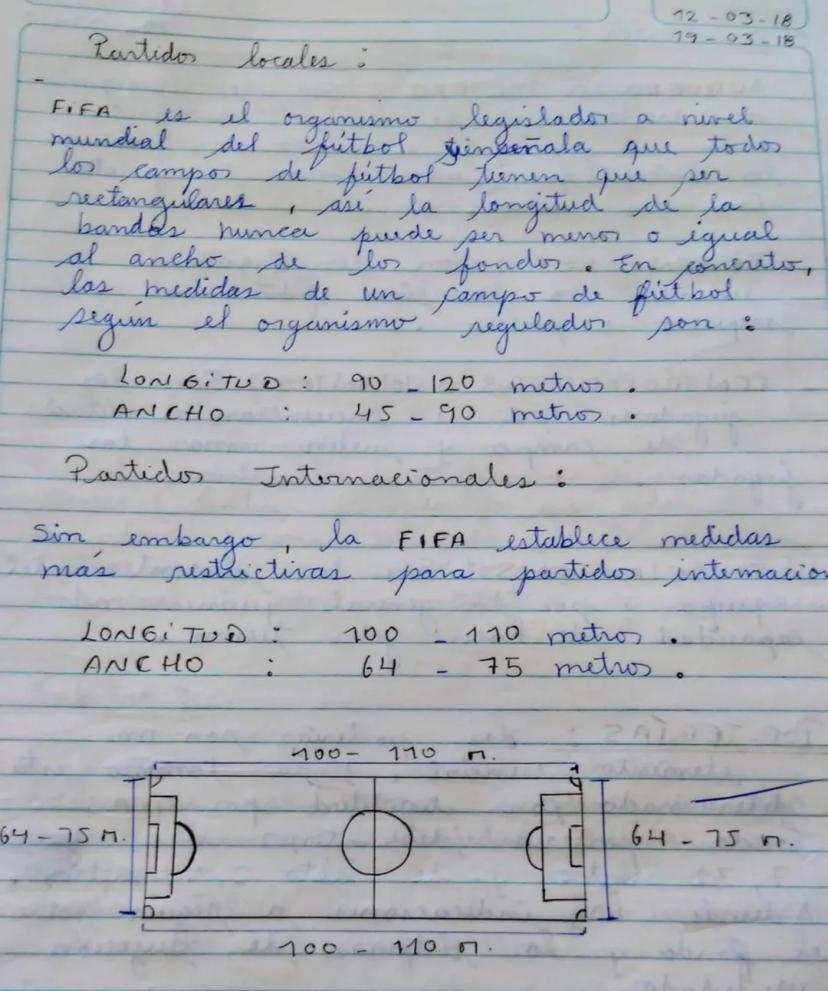 12-03-18
19-03-18
Partidos locales :
-
FiFA es el organismo legislador a nivel
mundial del fútbol que todos
los campos de fútbol tienen que ser
rectangulares, así la longitud de la
bandas nunca puede ser menor o igual
al ancho de los fondos. En concreto,
las medidas de un campo de fútbol
según el organismo regulador son :
LONGiTUD : 90 - 120 metros .
ANCHO : 45 - 90 metros .
Partidos Internacionales :
Sin embargo, la FIFA establece medidas
más restrictivas para partidos internacion
LONGiTUD : 100 - 110 metros .
ANCHO : 64 - 75 metros .
100- 110 m.
64-75 m.
64 - 75 m.
100 - 110 m.